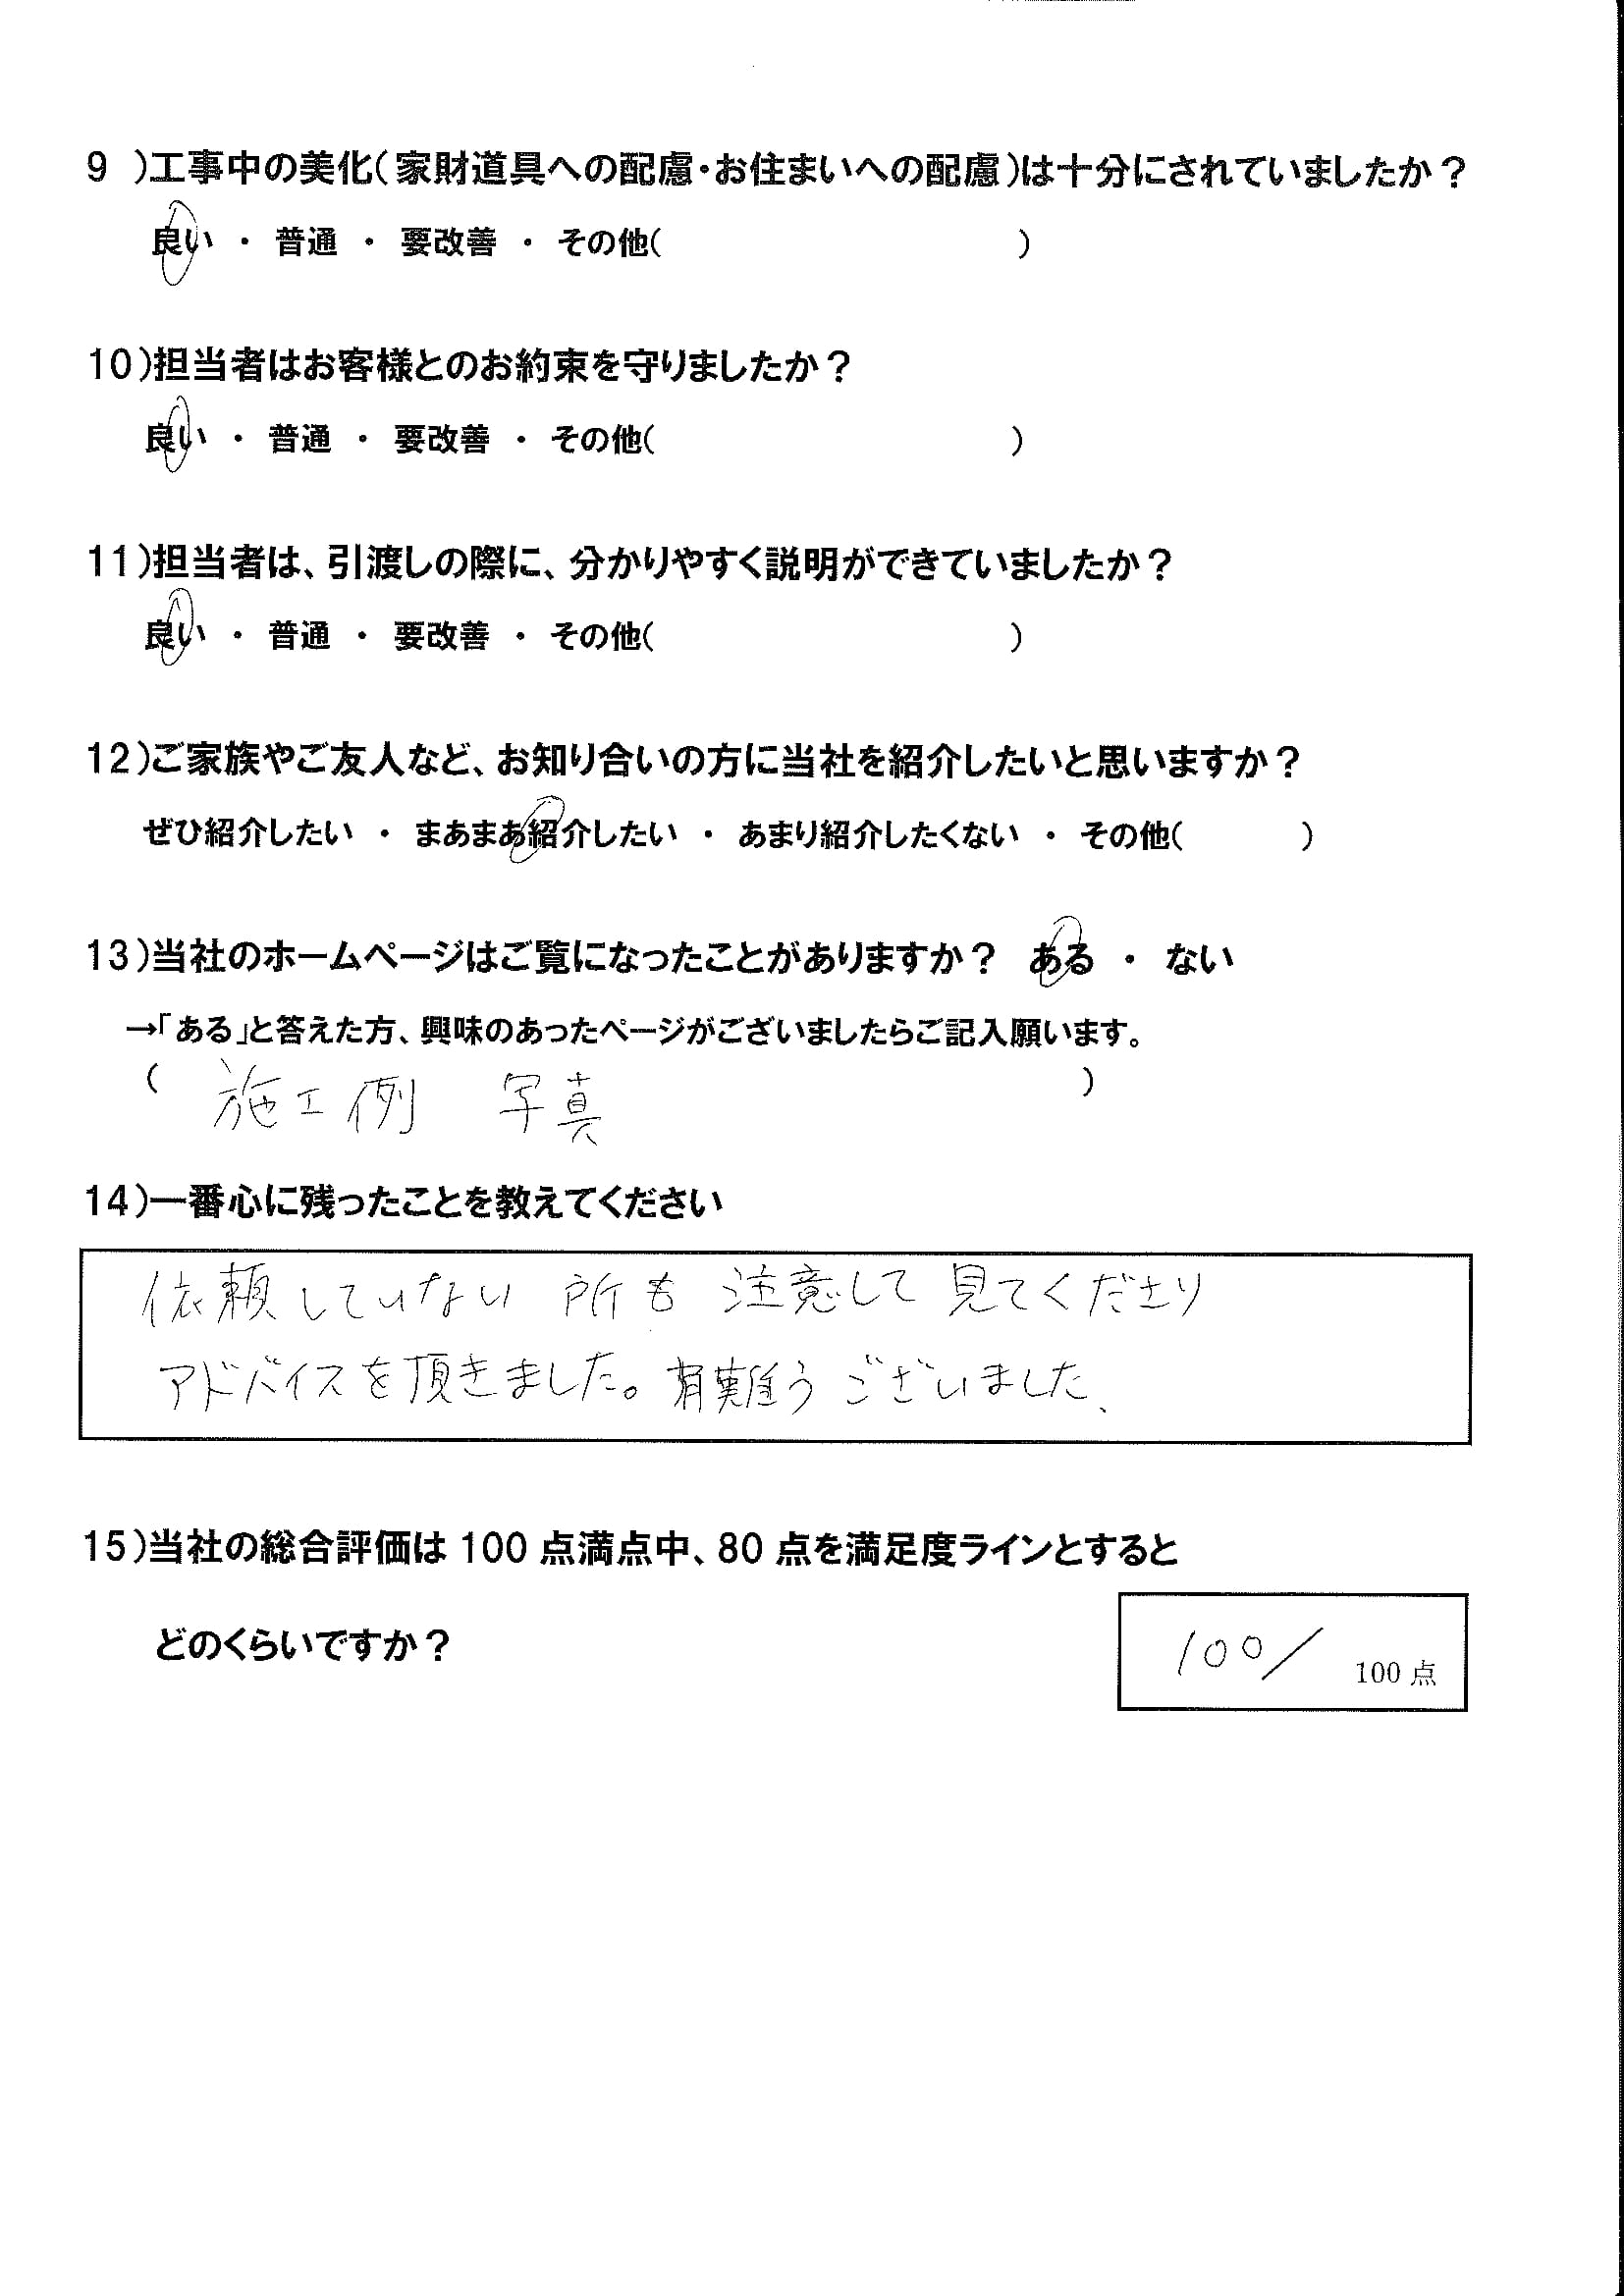 9 )工事中の美化(家財道具への配慮・お住まいへの配慮)は十分にされていましたか?
良い ・ 普通 ・ 要改善 ・ その他( )
10)担当者はお客様とのお約束を守りましたか?
良い ・ 普通 ・ 要改善 ・ その他( )
11)担当者は、引渡しの際に、分かりやすく説明ができていましたか?
良い ・ 普通 ・ 要改善 ・ その他( )
12)ご家族やご友人など、お知り合いの方に当社を紹介したいと思いますか?
ぜひ紹介したい ・ まあまあ紹介したい ・ あまり紹介したくない ・ その他( )
13)当社のホームページはご覧になったことがありますか? ある ・ ない
→「ある」と答えた方、興味のあったページがございましたらご記入願います。
( 施工例 写真 )
14)一番心に残ったことを教えてください
依頼していない 所も 注意して 見てくださり
アドバイスを頂きました。有難うございました、
15)当社の総合評価は 100 点満点中、80 点を満足度ラインとすると
どのくらいですか?
100/ 100 点